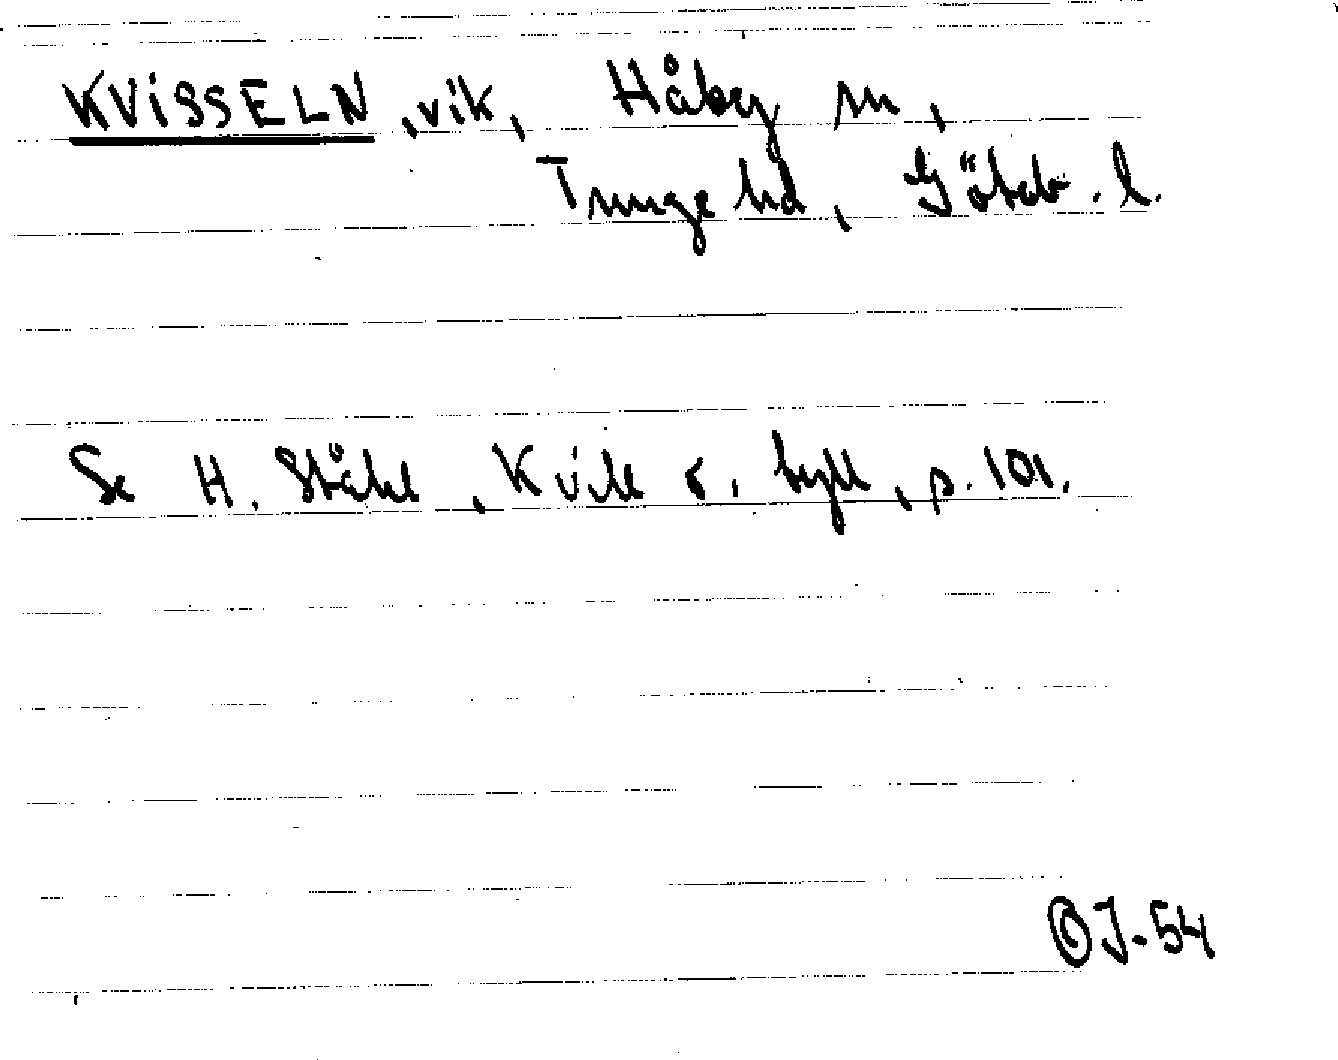 KVISSELN, vik, Håby sn,
Tunge hd, Göteb. l.
Se H. Ståhl, Kvill o. tyll, p. 101.
OJ-54